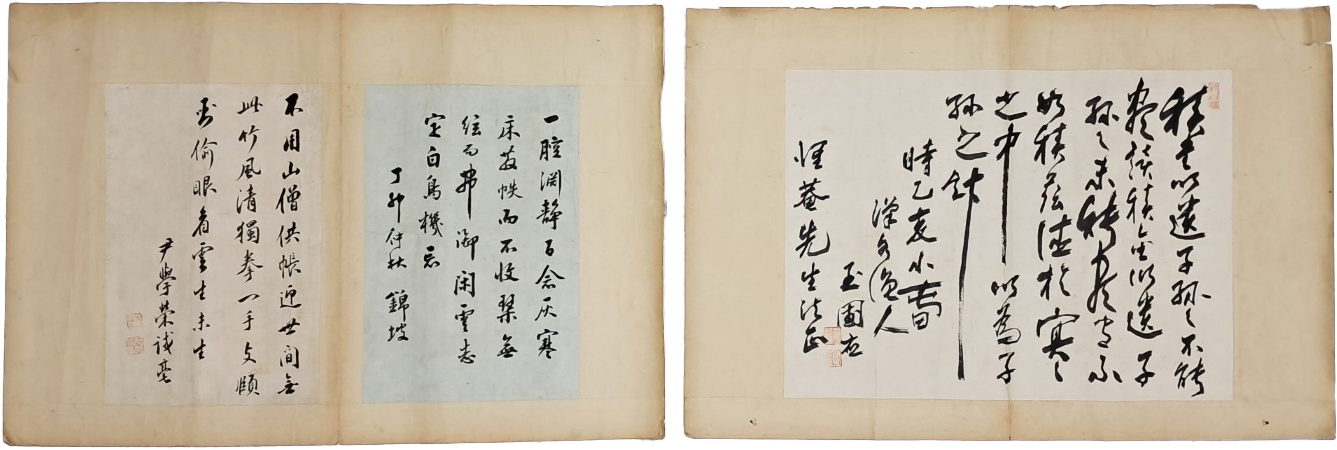 積書以遺子孫〻不能
盡讀積金以遺子
孫〻未能盡守不
如積陰德於冥〻
之中以為子
孫之計
時乙亥小春
漢水漁人
玉圃
惺菴先生法正
一腔淵靜百念灰寒
床散帙而不收琴無
絃而常御閑雲志
定白鳥機忘
丁卯仲秋 錦坡
不用山僧供帳迎世間無
此竹風清獨拳一手支頤
臥偷眼看雲生未生
尹學榮試毫